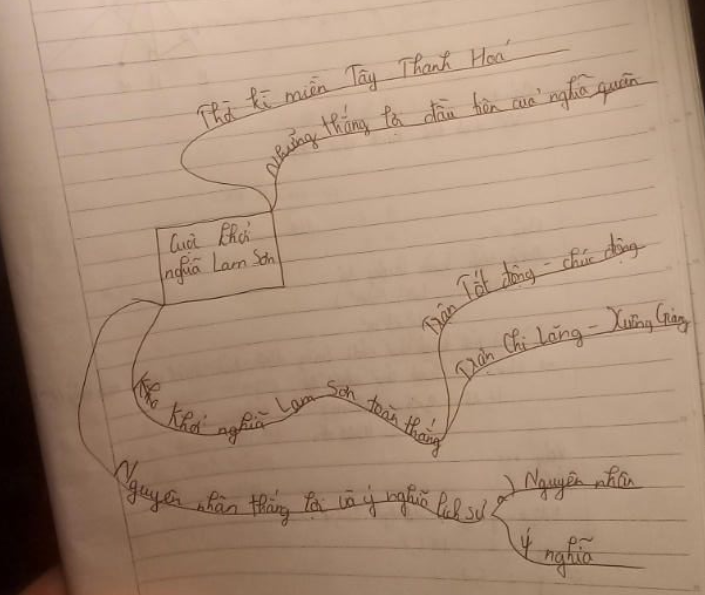 Thời kì miền Tây Thanh Hoá
Những thắng lợi đầu tiên của nghĩa quân
Cuộc khởi
nghĩa Lam Sơn
Trận Tốt động - chúc động
Trận Chi Lăng - Xương Giang
Khởi nghĩa Lam Sơn toàn thắng
Nguyên nhân thắng lợi và ý nghĩa lịch sử
a) Nguyên nhân
ý nghĩa